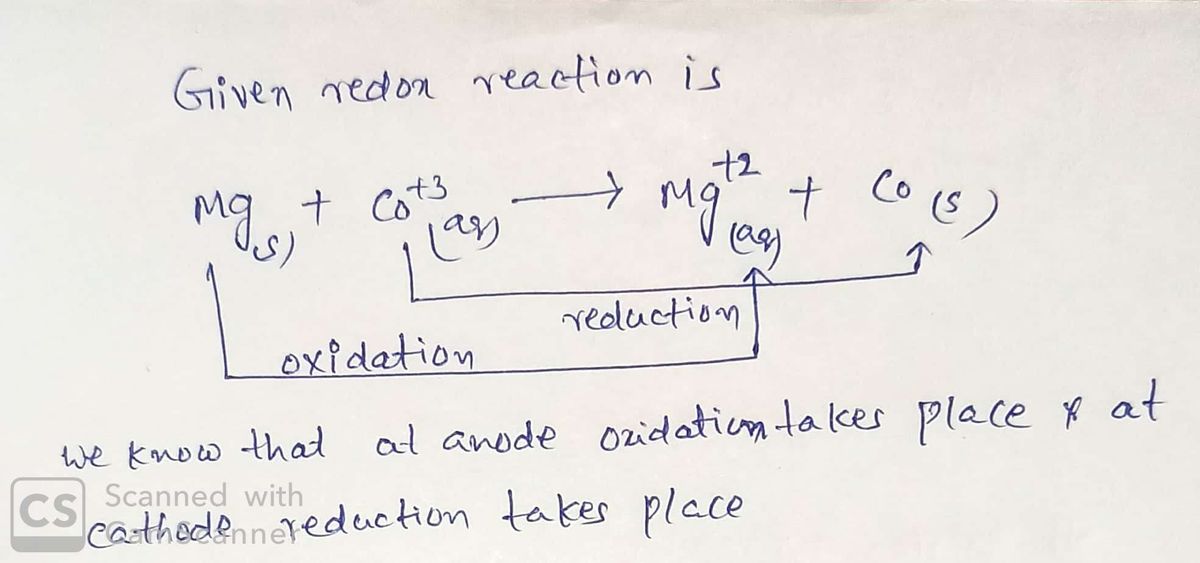 Given redox reaction is
Mg(s) + Co+3(aq) → Mg+2(aq) + Co(s)
reduction
oxidation
we know that at anode oxidation takes place & at
CS Scanned with
cathode reduction takes place
CamScanner